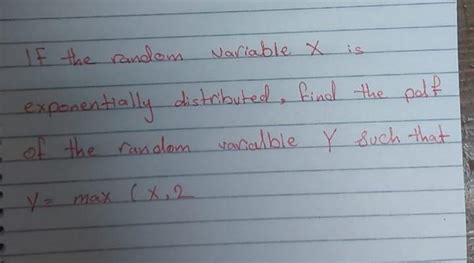 IF the random variable X is
exponentially distributed, find the pdf
of the random varialble Y such that
Y= max (X,2